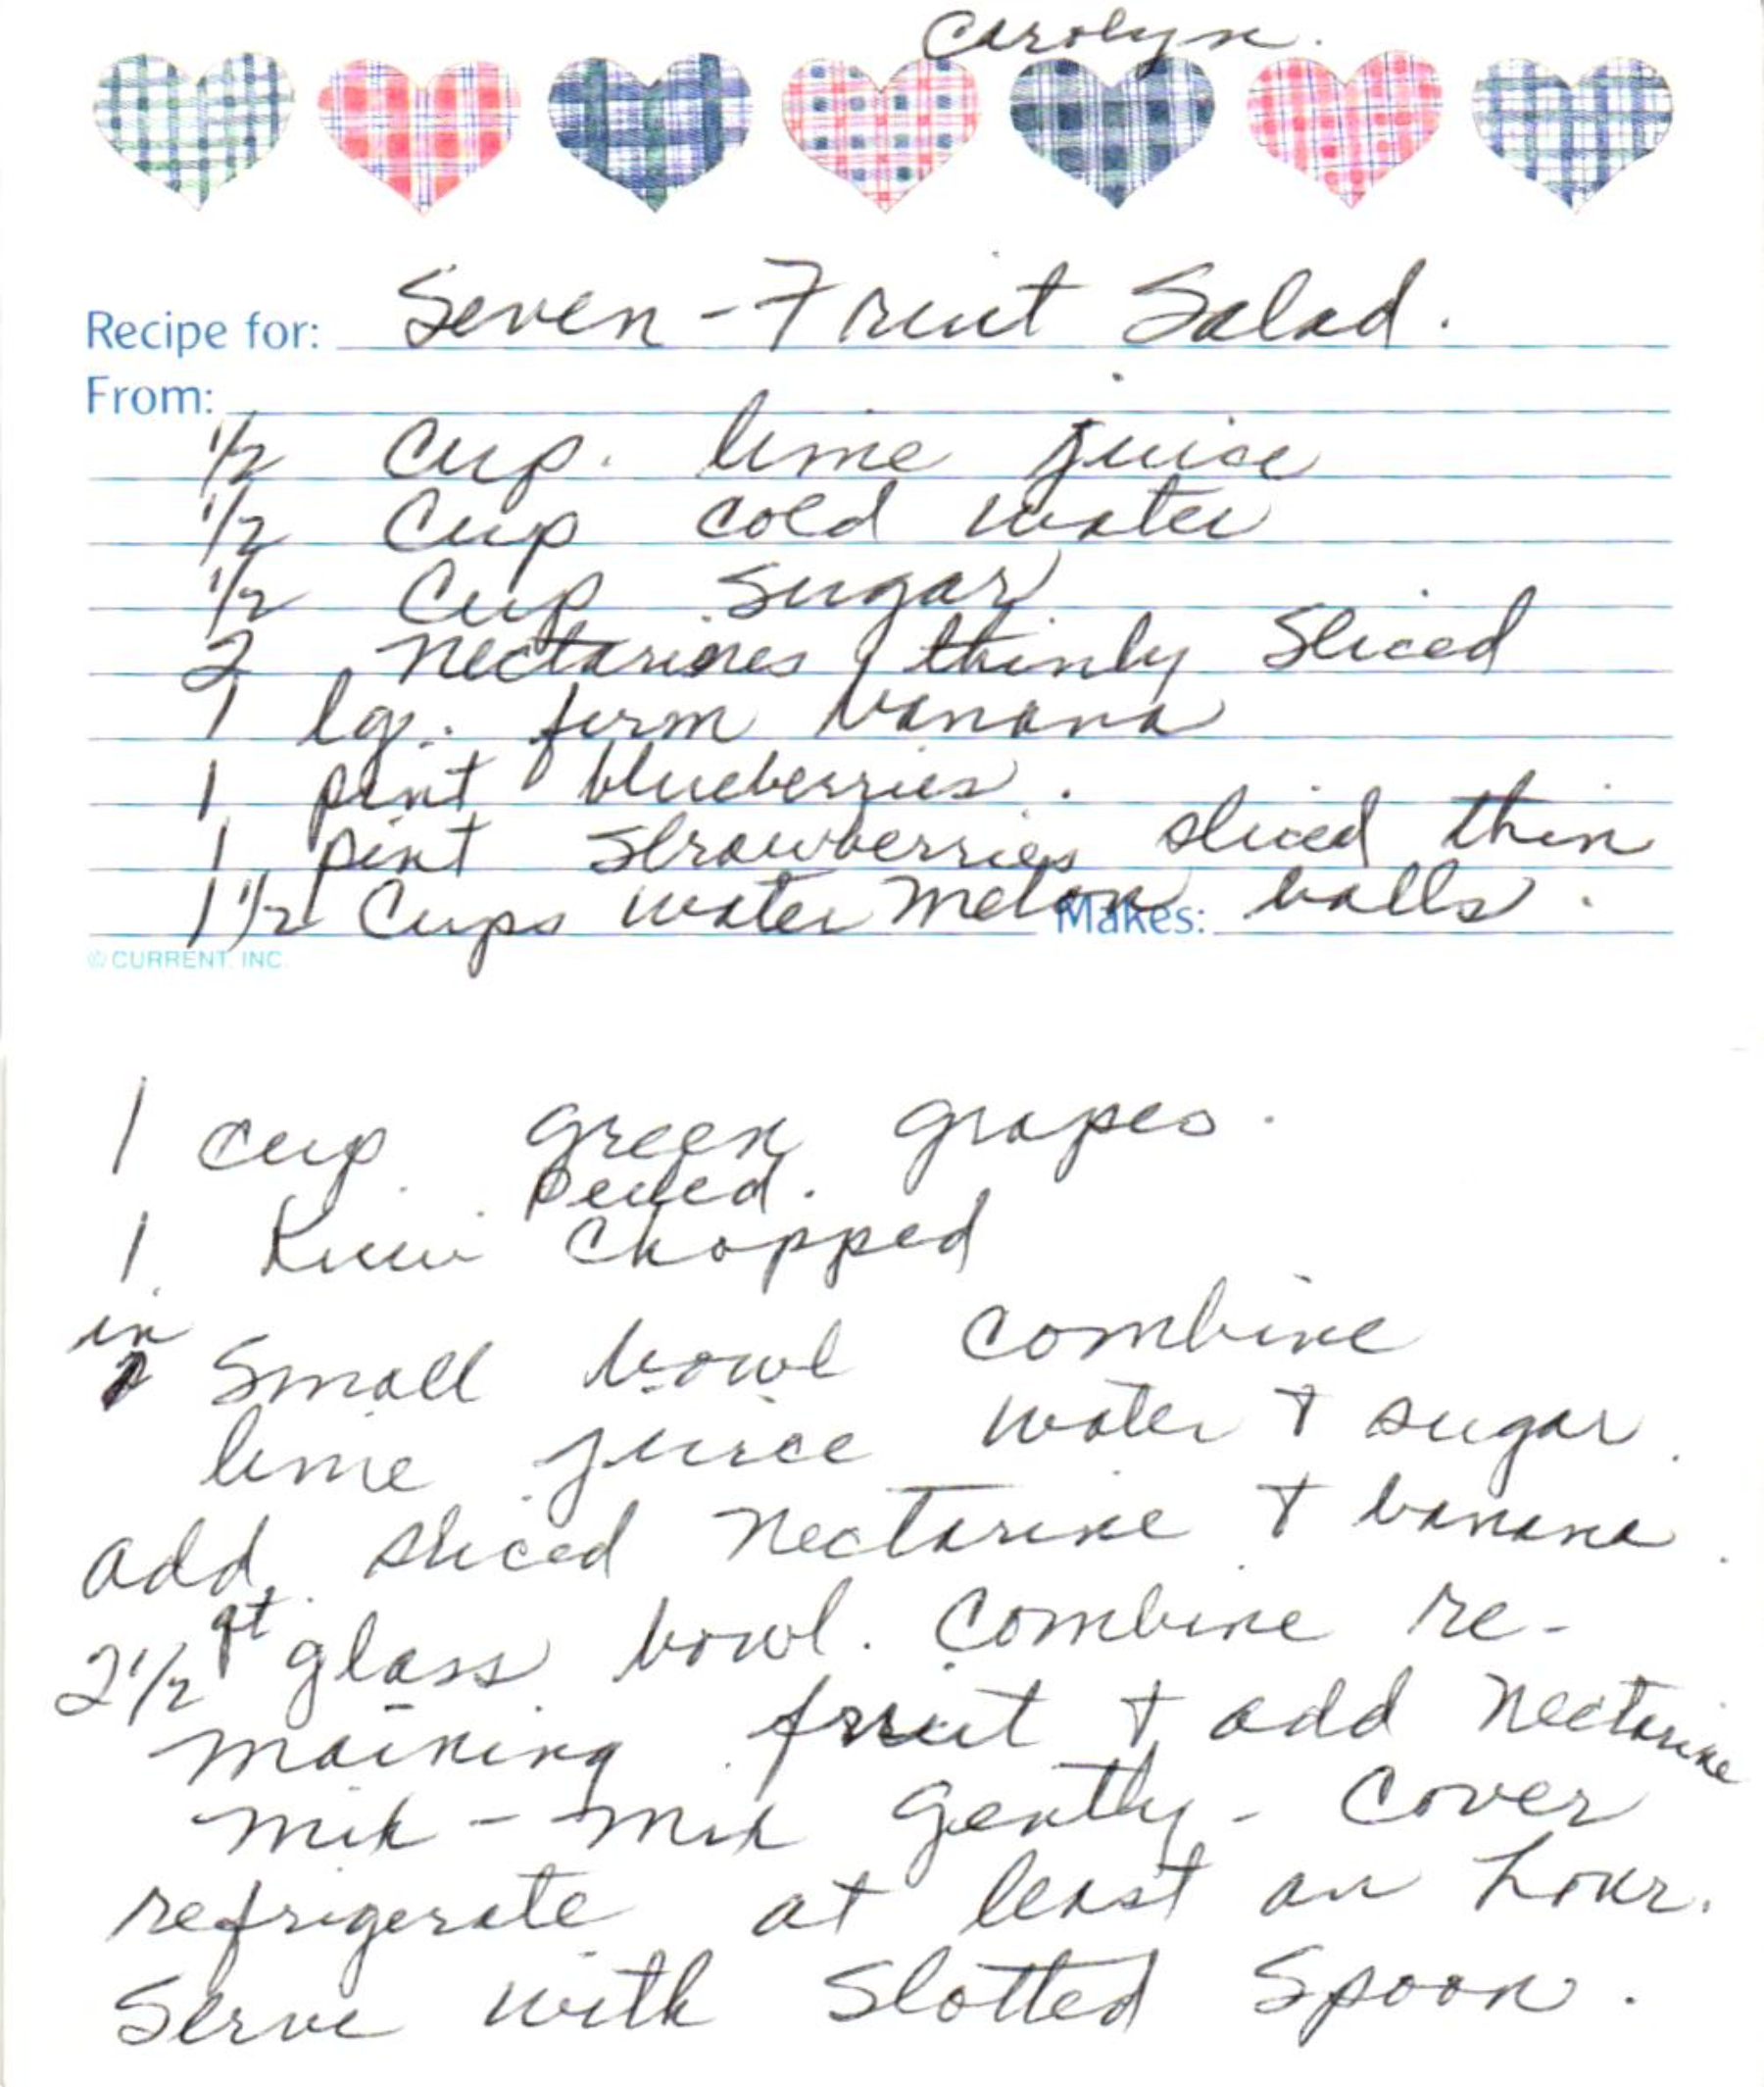 Carolyn.
Recipe for: Seven-Fruit Salad.
From:
1/2 Cup. lime juice
1/2 Cup cold water
1/2 Cup sugar
2 nectarines, thinly Sliced
1 lg. firm banana
1 pint blueberries.
1 pint strawberries sliced thin
1 1/2 Cups water melon balls.
Makes:
© CURRENT, INC.
1 cup green grapes.
peeled.
1 Kiwi Chopped
in
Small bowl combine
lime juice water + sugar.
add sliced nectarine + banana.
2 1/2 qt glass bowl. Combine re-
maining fruit + add nectarine
mix - mix gently - Cover
refrigerate at least an hour.
Serve with Slotted Spoon.